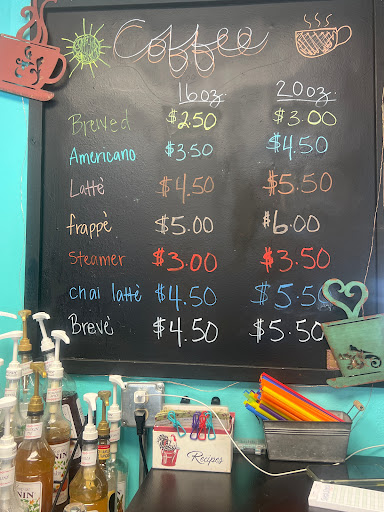 Coffee
16oz. 20oz.
Brewed $2.50 $3.00
Americano $3.50 $4.50
Lattè $4.50 $5.50
frappè $5.00 $6.00
Steamer $3.00 $3.50
chai lattè $4.50 $5.50
Brevè $4.50 $5.50
Recipes
NIN
NIN